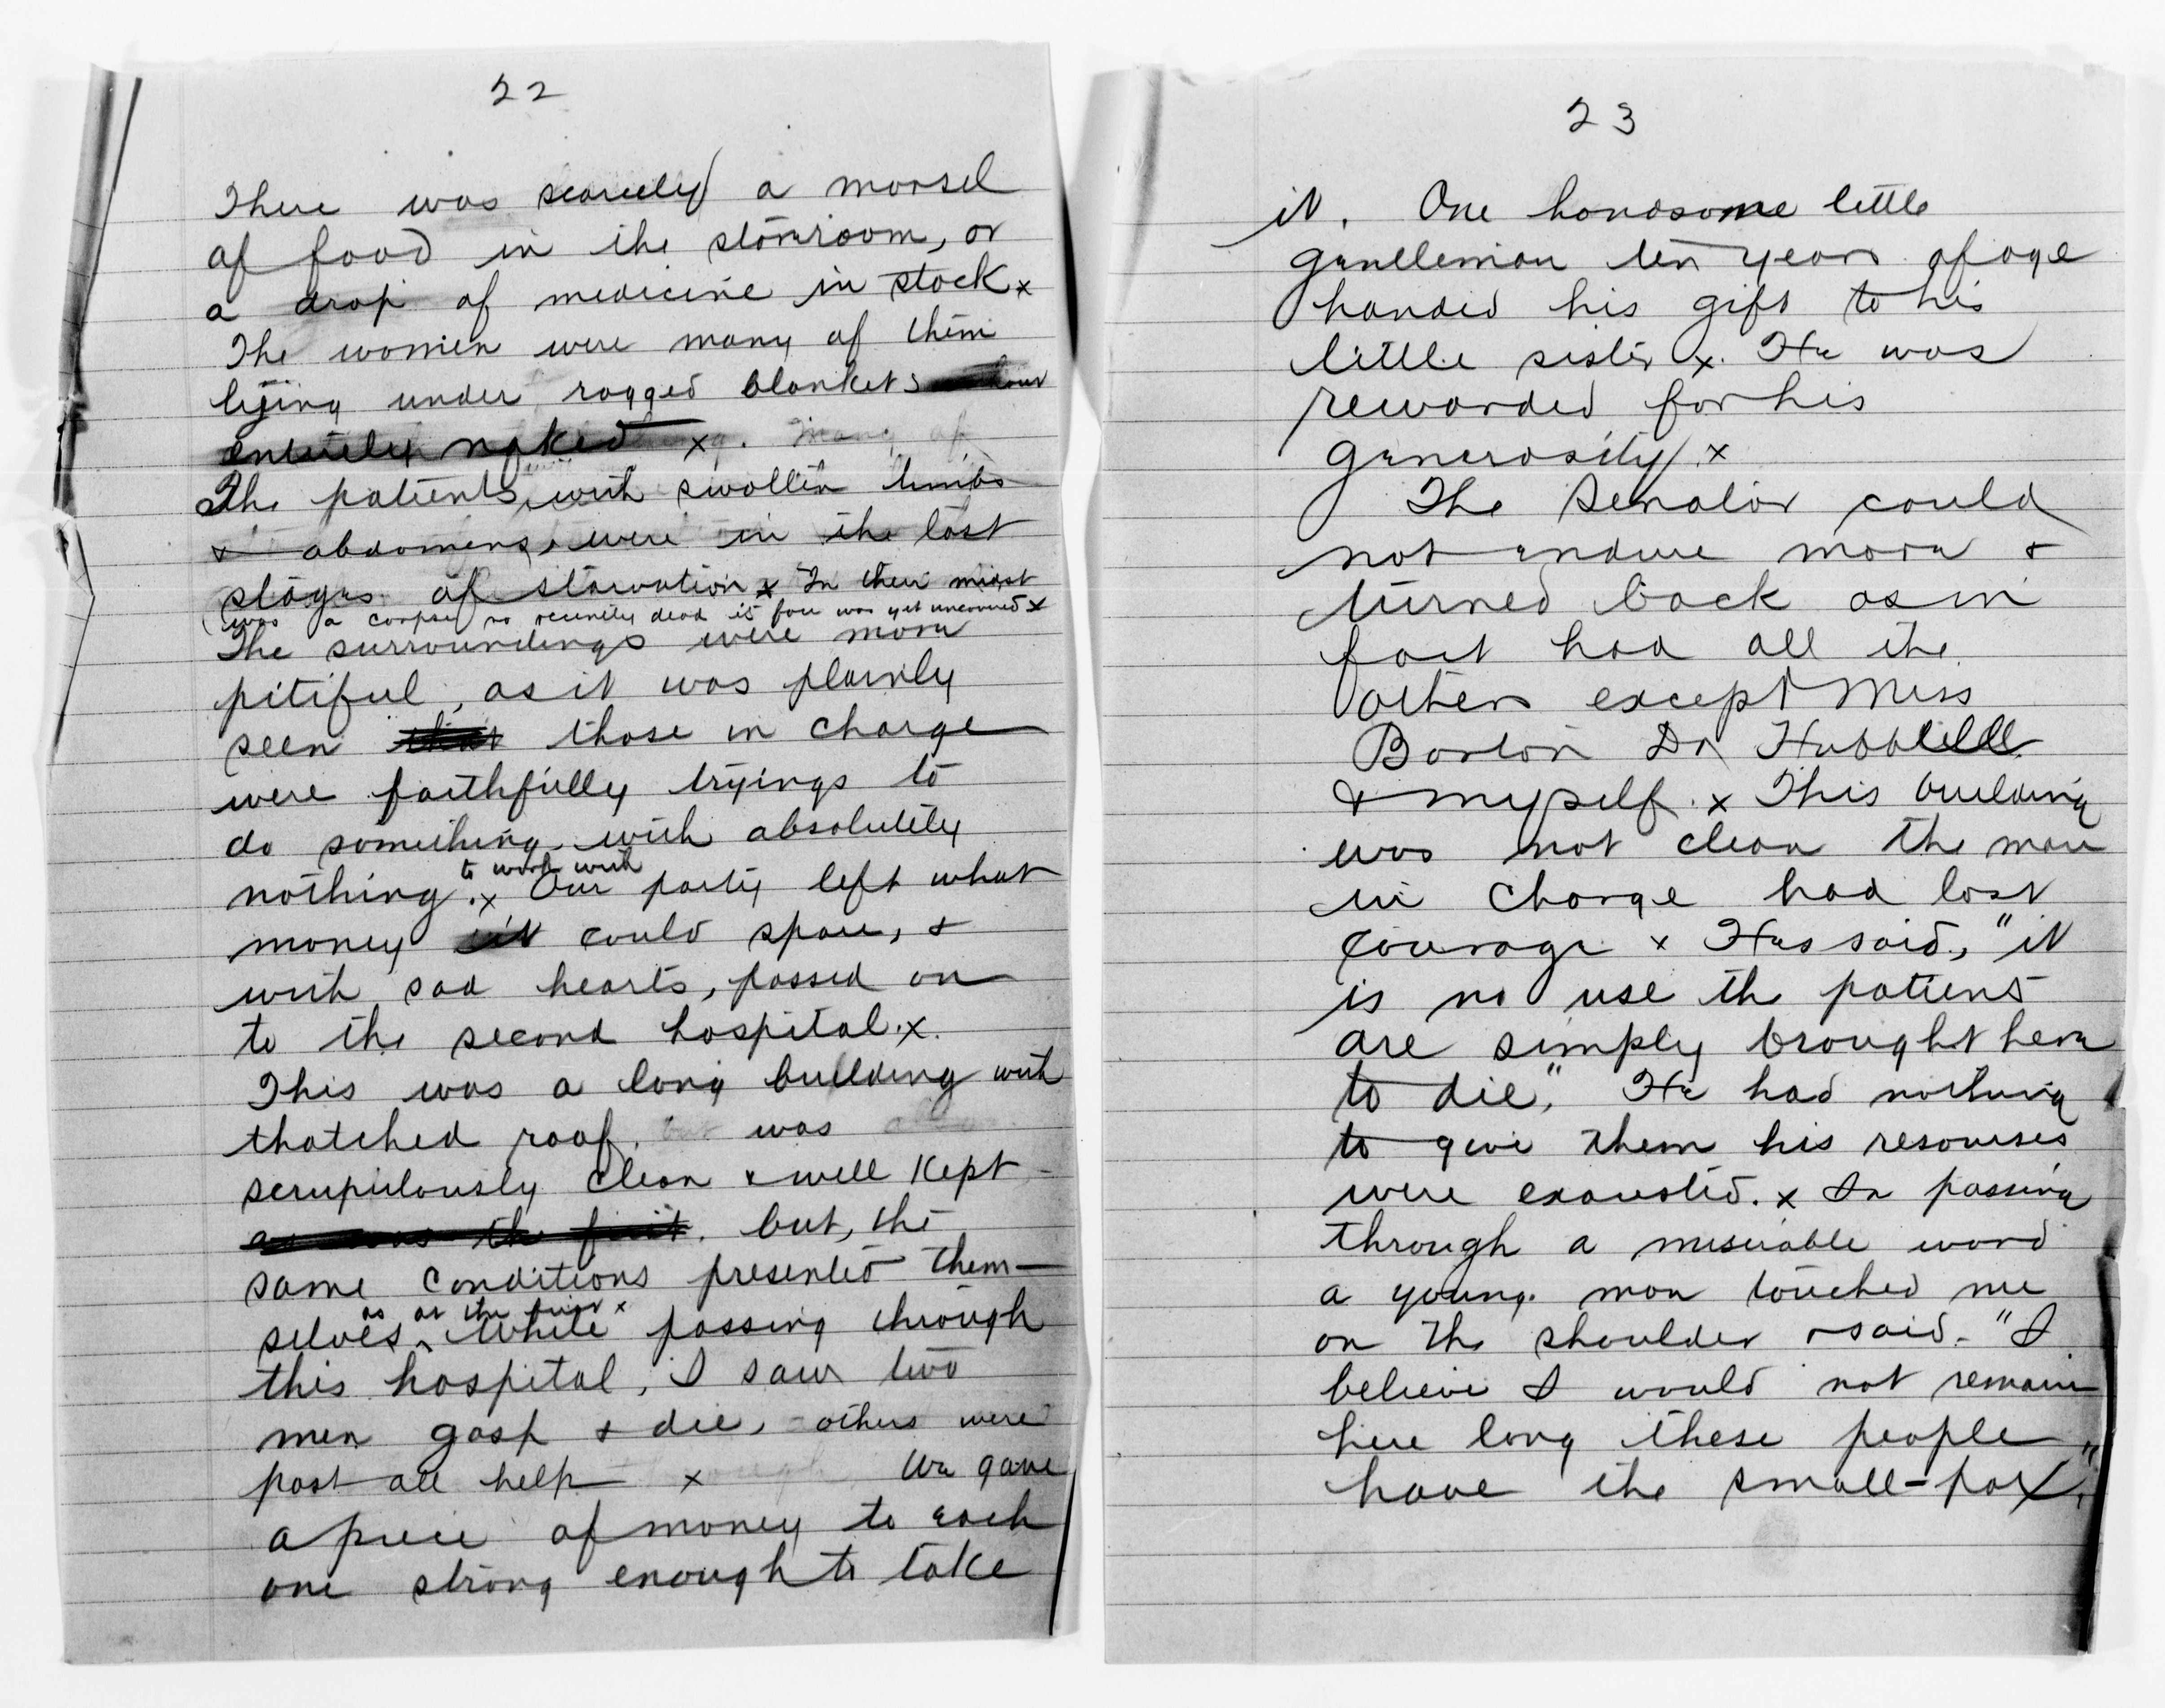 22
There was scarcely a morsel
of food in the storeroom, or
a drop of medicine in stock x
The women were many of them
lying under ragged blankets
entirely naked x.
The patients, with swollen limbs
& abdomens, were in the last
stages of starvation x In their midst
was a corpse so recently dead its face was yet uncovered x
The surroundings were more
pitiful, as it was plainly
seen that those in charge
were faithfully tryings to
do something with absolutely
to work with
nothing. x Our party left what
money it could spare, &
with sad hearts, passed on
to the second hospital. x.
This was a long building with
thatched roof. but was
scrupulously clean & well kept
as was the first. but, the
same conditions presented them-
as at the first x
selves ^ While passing through
this hospital, I saw two
men gasp & die, others were
past all help x We gave
a piece of money to each
one strong enough to take
23
it. One handsome little
gentleman ten years of age
handed his gift to his
little sister x. He was
rewarded for his
generosity. x
The Senator could
not endure more &
turned back as in
fact had all the
others except Miss
Barton Dr Hubblell
& myself. x This building
was not clean the man
in charge had lost
courage x He said, "it
is no use the patients
are simply brought here
to die," He had nothing
to give them his resourses
were exausted. x In passing
through a miserable ward
a young man touched me
on the shoulder & said. "I
believe I would not remain
here long these people
have the small-pox."